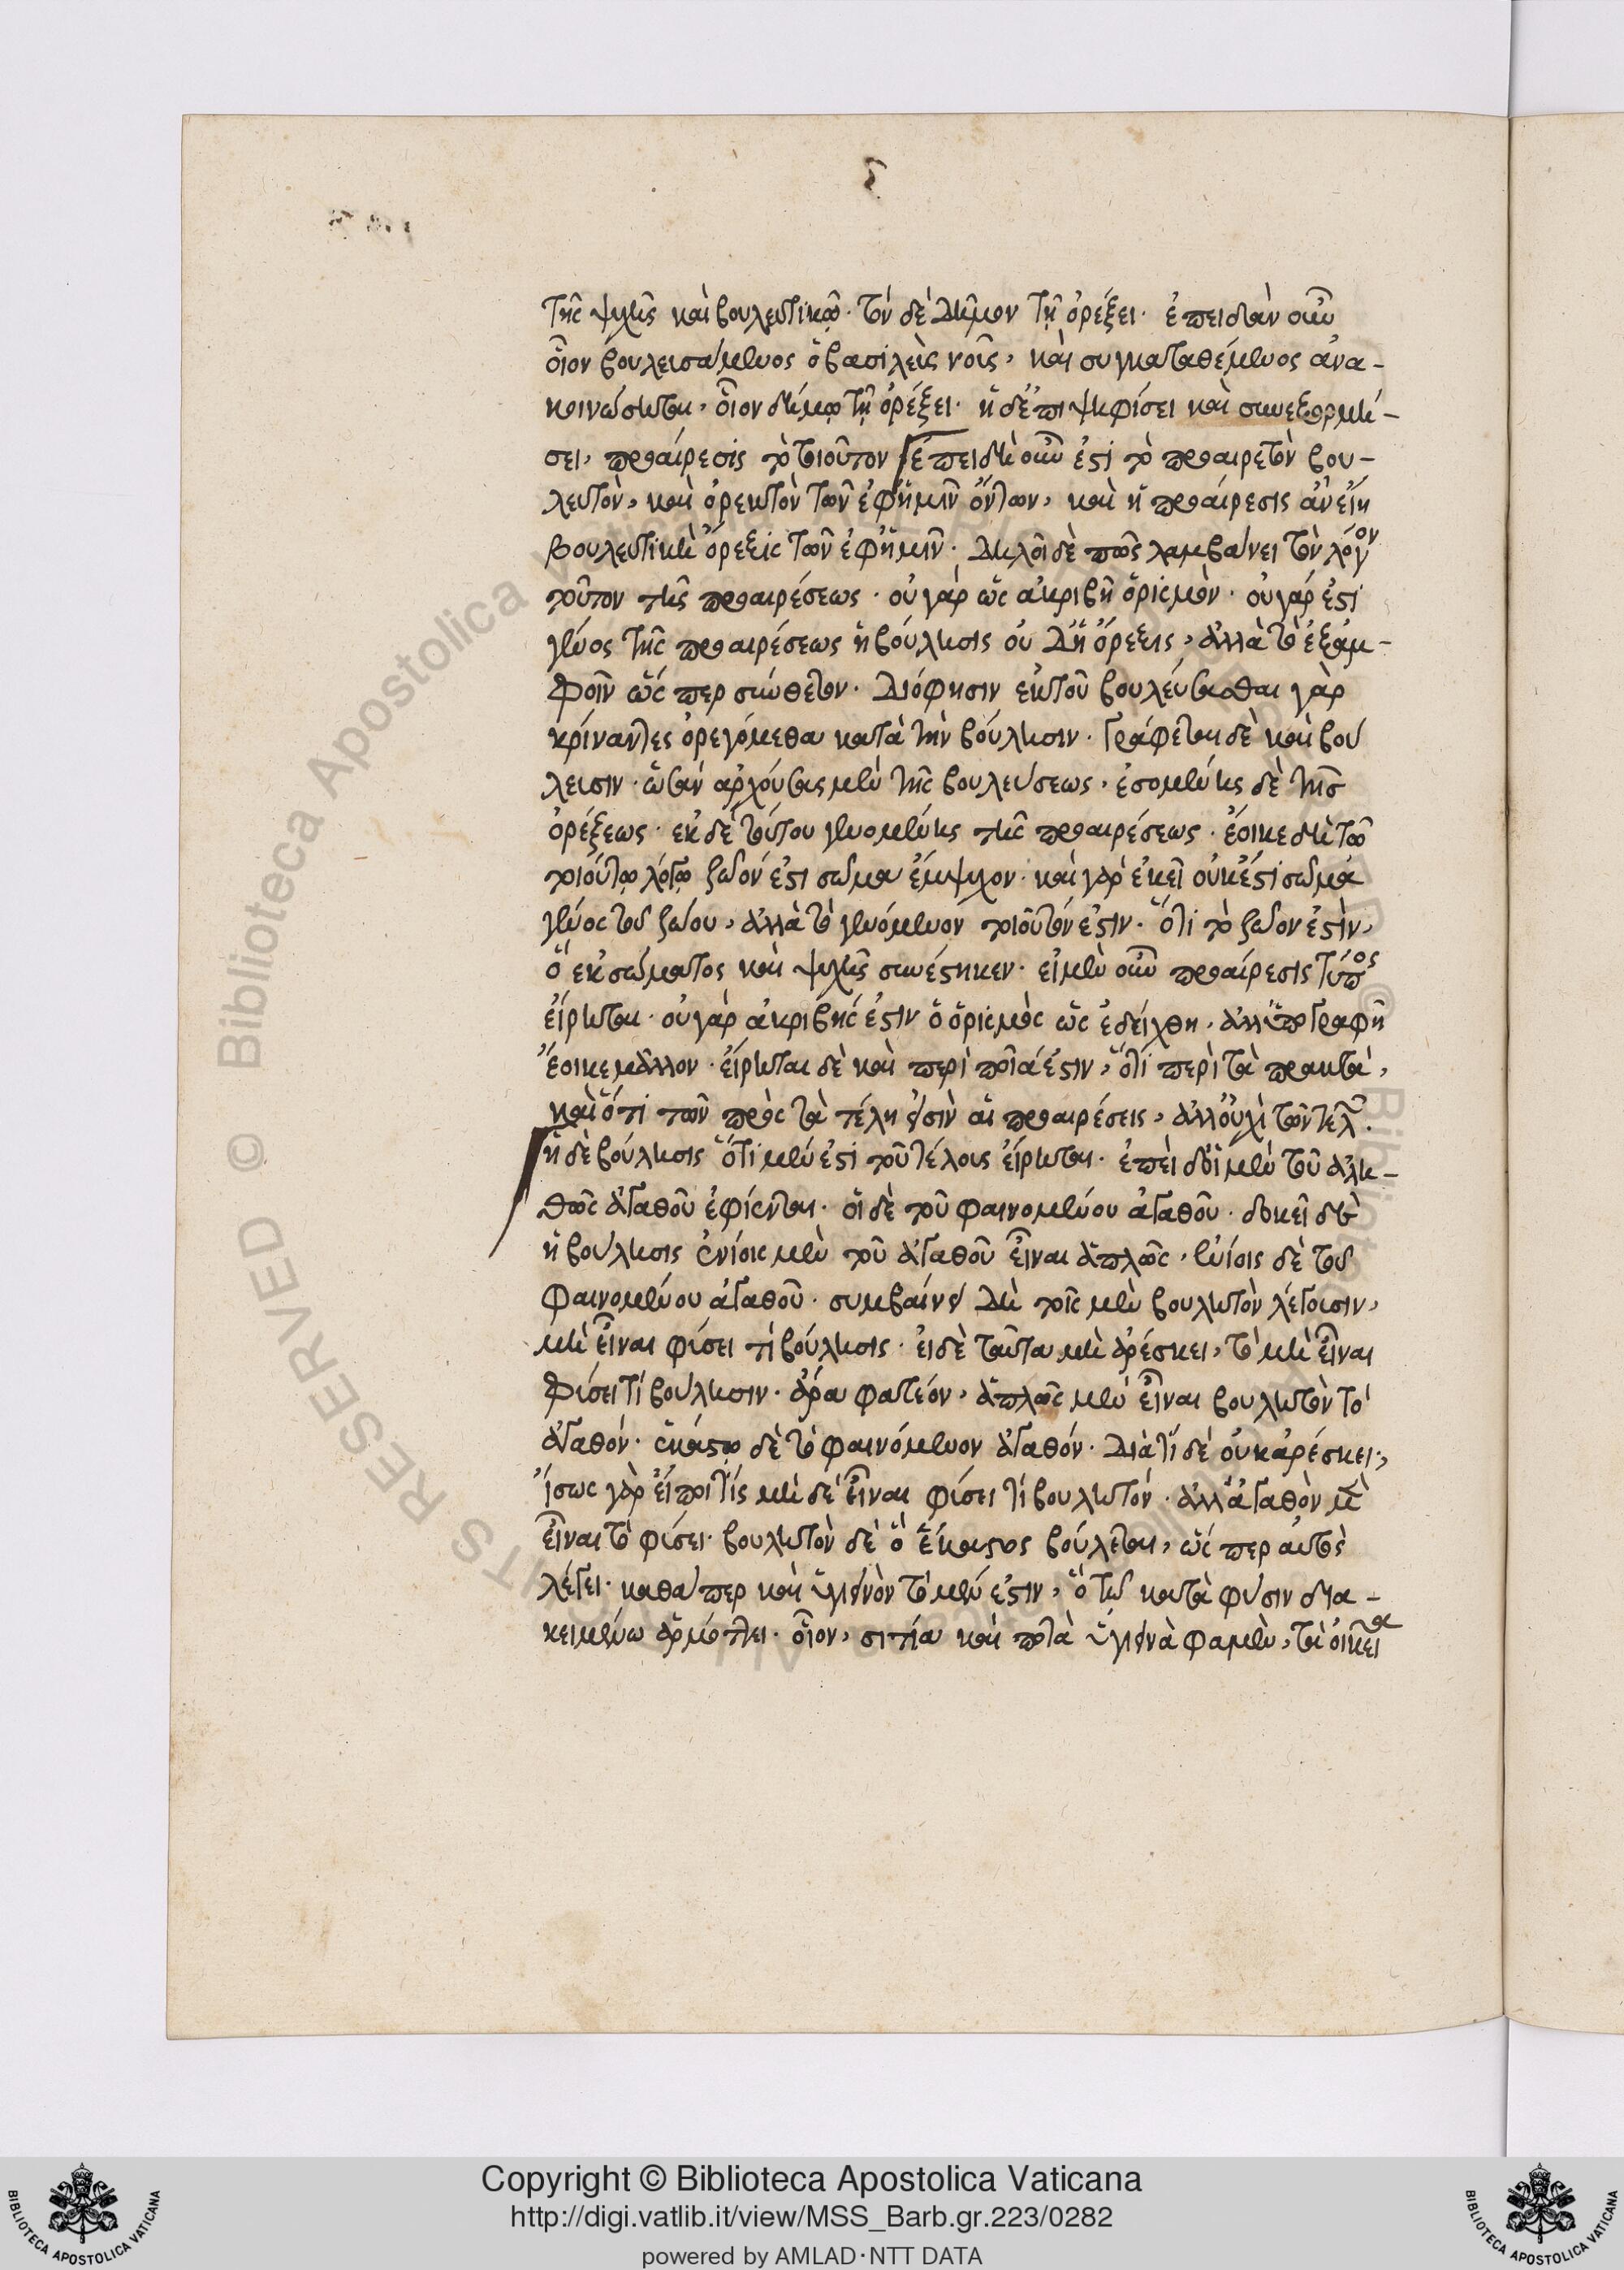 γ
τῆς ψυχῆς καὶ βουλευτικῷ· τὸν δὲ δῆμον τῇ ὀρέξει· ἐπειδὰν οὖν
οἷον βουλεισάμενος ὁ βασιλεὺς νοῦς, καὶ συγκαταθέμενος ἀνα-
κοινώσηται, οἷον δήμῳ τῇ ὀρέξει· ἡ δ' ἐπιψηφίσει καὶ συνεξορμή-
σει, προαίρεσις τὸ τοιοῦτον ἐπειδὴ οὖν ἐστι τὸ προαιρετὸν βου-
λευτὸν, καὶ ὀρεκτὸν τῶν ἐφ' ἡμῖν ὄντων, καὶ ἡ προαίρεσις ἂν εἴη
βουλευτικὴ ὄρεξις τῶν ἐφ' ἡμῖν· δηλοῖ δὲ πῶς λαμβάνει τὸν λόγον
τοῦτον τῆς προαιρέσεως· οὐ γὰρ ὡς ἀκριβῆ ὁρισμὸν· οὐ γάρ ἐστι
γένος τῆς προαιρέσεως ἡ βούλησις οὐδ' ἡ ὄρεξις, ἀλλὰ τὸ ἐξ ἀμ-
φοῖν ὥσπερ σύνθετον· διό φησιν ἐκ τοῦ βουλεύσασθαι γὰρ
κρίναντες ὀρεγόμεθα κατὰ τὴν βούλησιν· γράφεται δὲ καὶ βού
λεισιν· ὡσὰν ἀρχούσας μὲν τῆς βουλεύσεως, ἑπομένης δὲ τῆς
ὀρέξεως· ἐκ δὲ τούτου γενομένης τῆς προαιρέσεως· ἔοικε δὴ τῷ
τοιούτῳ λόγῳ ζῶόν ἐστι σῶμα ἔμψυχον· καὶ γὰρ ἐκεῖ οὐκ ἔστι σῶμα
γένος τοῦ ζώου, ἀλλὰ τὸ γενόμενον τοιοῦτόν ἐστιν· ὅτι τὸ ζῶον ἐστὶν,
ὃ ἐκ σώματος καὶ ψυχῆς συνέστηκεν· εἰ μὲν οὖν προαίρεσις τύπος
εἴρηται· οὐ γὰρ ἀκριβής ἐστιν ὁ ὁρισμὸς ὡς ἐδείχθη, ἀλλ' ὑπογραφῇ
ἔοικε μᾶλλον· εἴρηται δὲ καὶ περὶ ποῖά ἐστιν, ὅτι περὶ τὰ πρακτὰ,
καὶ ὅτι τῶν πρὸς τὰ τέλη εἰσὶν αἱ προαιρέσεις, ἀλλ' οὐχὶ τῶν τελῶν.
ἡ δὲ βούλησις ὅτι μέν ἐστι τοῦ τέλους εἴρηται· ἐπεὶ δ' οἱ μὲν τοῦ ἀλη-
θῶς ἀγαθοῦ ἐφίενται· οἱ δὲ τοῦ φαινομένου ἀγαθοῦ· δοκεῖ δὲ
ἡ βούλησις ἐνίοις μὲν τοῦ ἀγαθοῦ εἶναι ἁπλῶς, ἐνίοις δὲ τοῦ
φαινομένου ἀγαθοῦ· συμβαίνει δὴ τοῖς μὲν βουλητὸν λέγουσιν,
μὴ εἶναι φύσει τὶ βούλησις· εἰ δὲ ταῦτα μὴ ἀρέσκει, τὸ μὴ εἶναι
φύσει τί βούλησιν· ἆρα φατέον, ἁπλῶς μὲν εἶναι βουλητὸν τὸ
ἀγαθόν· ἑκάστῳ δὲ τὸ φαινόμενον ἀγαθόν· διὰ τί δὲ οὐκ ἀρέσκει,
ἴσως γὰρ εἴποι τίς μὴ δὲ εἶναι φύσει τὶ βουλητόν· ἀλλ' ἀγαθὸν μὲν
εἶναι τὸ φύσει· βουλητὸν δὲ ὃ ἕκαστος βούλεται, ὥσπερ αὐτὸς
λέγει· καθάπερ καὶ ὑγιεινὸν τὸ μέν ἐστιν, ὃ τῷ κατὰ φύσιν δια-
κειμένω ἁρμόττει· οἷον, σιτία καὶ ποτὰ ὑγιεινὰ φαμὲν, τὰ οἰκεῖα
Copyright © Biblioteca Apostolica Vaticana
http://digi.vatlib.it/view/MSS_Barb.gr.223/0282
powered by AMLAD·NTT DATA